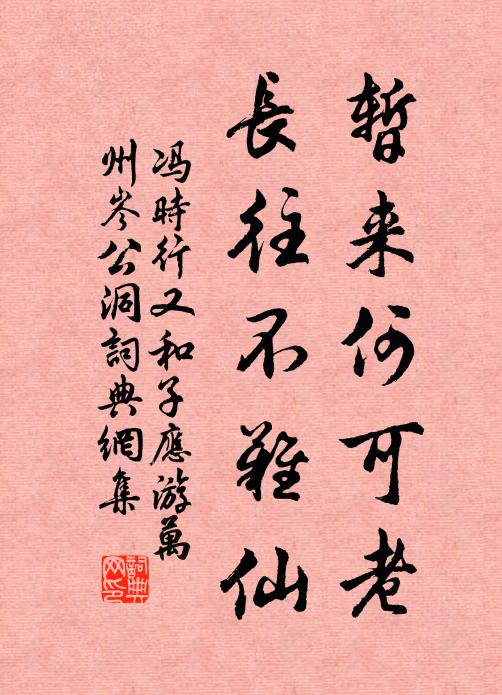 暫来何可老
長往不難仙
冯時行又和子應游萬
州岑公洞詞典網集
詞典
网印